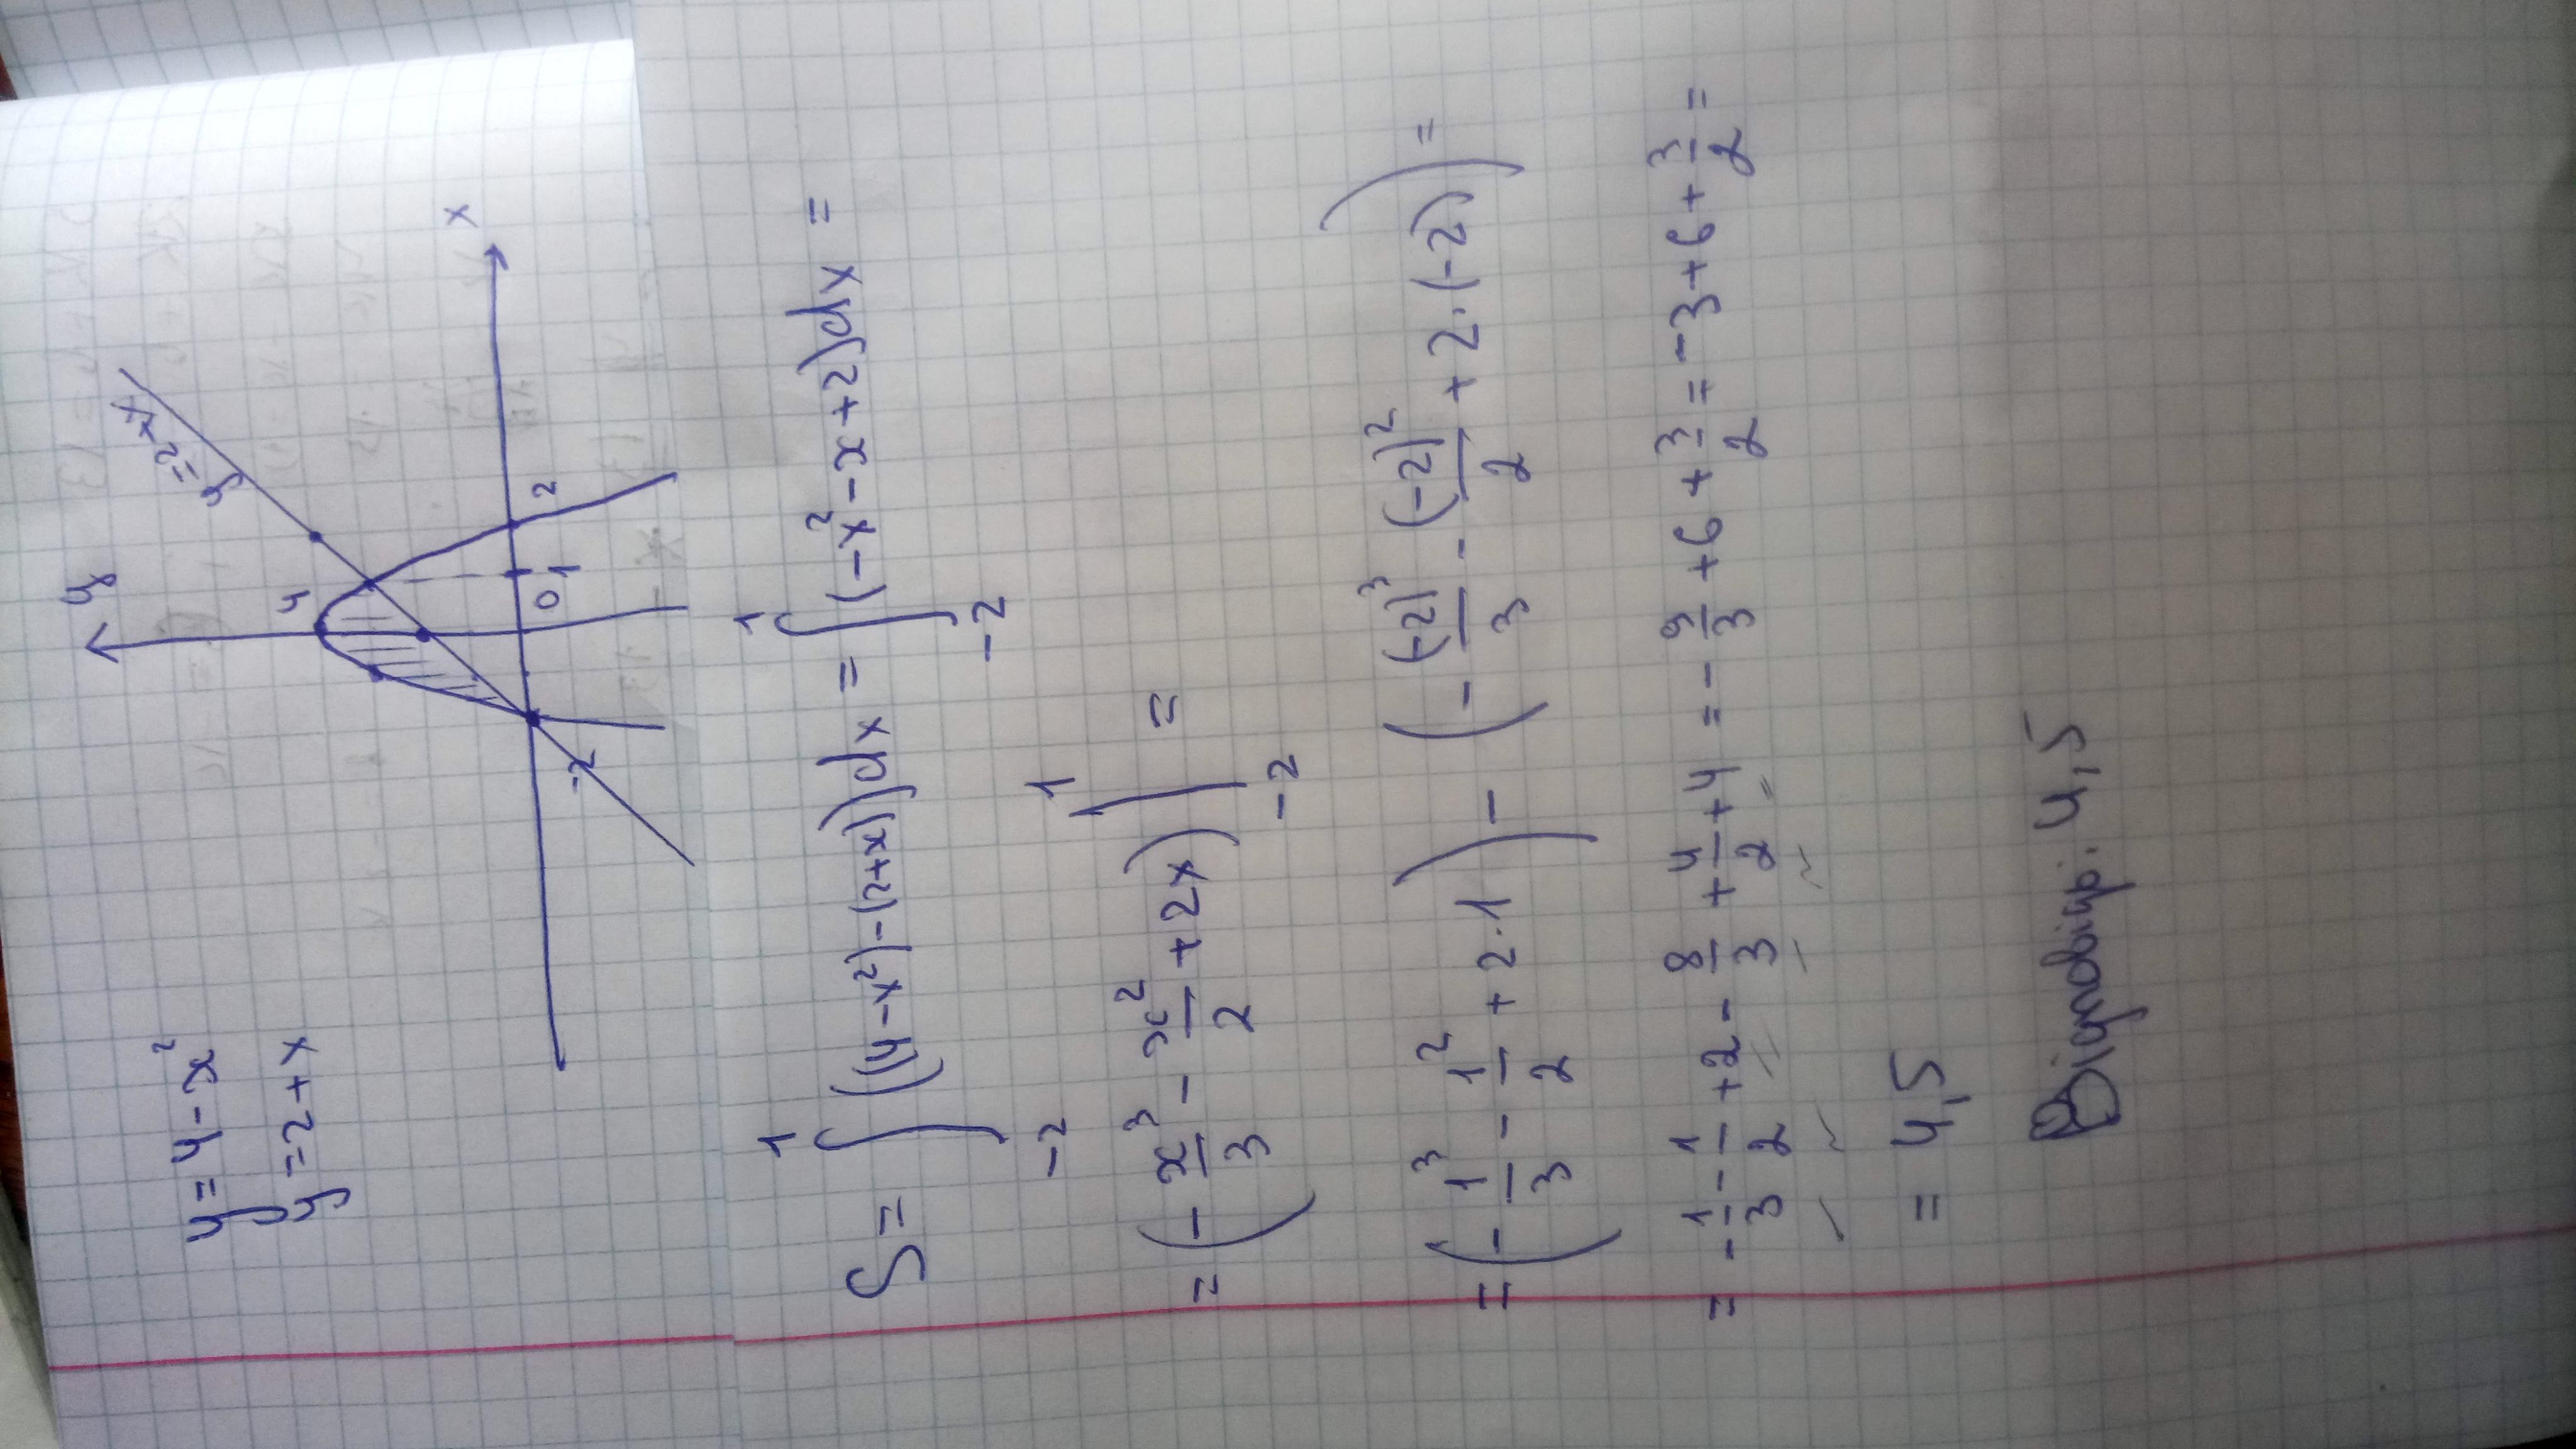 y = 4 - x²
y = 2 + x
y
x
4
y = 2 + x
-2
0
1
2
S = ∫₋₂¹ ((4 - x²) - (2 + x)) dx = ∫₋₂¹ (-x² - x + 2) dx =
= (- x³/3 - x²/2 + 2x) |₋₂¹ =
= (- 1³/3 - 1²/2 + 2·1) - (- (-2)³/3 - (-2)²/2 + 2·(-2)) =
= - 1/3 - 1/2 + 2 - 8/3 + 4/2 + 4 = - 9/3 + 6 + 3/2 = -3 + 6 + 3/2 =
= 4,5
Відповідь: 4,5